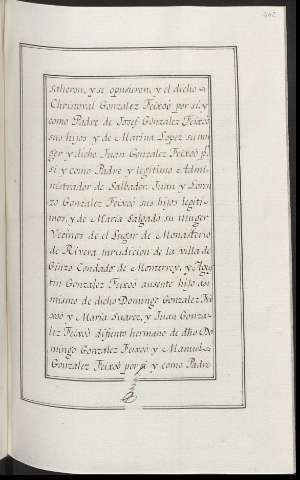 salieron, y se opusieron, y el dicho
Christoval Gonzalez Feixoò por sì, y
como Padre de Josef Gonzalez Feixoò
sus hijos y de Marina Lopez su mu
ger y dicho Juan Gonzalez Feixoò pr.
sì y como Padre y legitimo Admi-
nistrador de Salbador, Juan y Loren
zo Gonzalez Feixoò sus hijos legiti-
mos, y de Maria Salgado su muger
Vecinos de el Lugar de Monasterio
de Rivera jurisdicion de la villa de
Ginzo Condado de Monterrey, y Agus
tin Gonzalez Feixoò ausente hijo asi
mismo de dicho Domingo Gonzalez Fei
xoò y Maria Suarez, y Juan Gonza-
lez Feixoò difunto hermano de dho Do
mingo Gonzalez Feixoò y Manuel
Gonzalez Feixoò por sì y como Padre